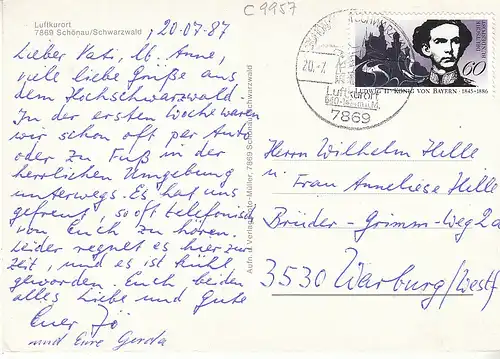 C 9957
Luftkurort
7869 Schönau/Schwarzwald
20-07-87
Lieber Vati, lb. Anne,
viele liebe Grüße aus
dem Hochschwarzwald
In der ersten Woche waren
wir schon oft per Auto
oder zu Fuß in der
herrlichen Umgebung
unterwegs. Es hat uns
gefreut, so oft telefonisch
von Euch zu hören.
Leider regnet es hier zur
Zeit, und es ist kühl
geworden. Euch beiden
alles Liebe und Gute
Euer Jö
und Eure Gerda
Aufn. u. Verlag Foto-Müller, 7869 Schönau/Schwarzwald
20.-7.
Luftkurort
7869
60
LUDWIG II · KÖNIG VON BAYERN · 1845-1886
DEUTSCHE BUNDESPOST
Herrn Wilhelm Hille
u Frau Anneliese Hille
Brüder-Grimm-Weg 2a
3530 Warburg/Westf